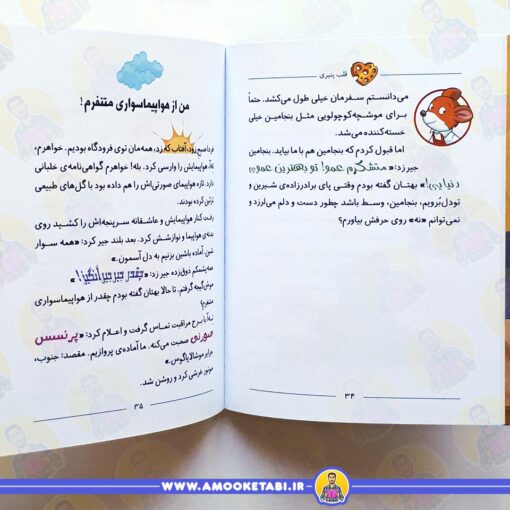 قلب پنیری
می‌دانستم سفرمان خیلی طول می‌کشد. حتماً
برای موشچه‌کوچولویی مثل بنجامین خیلی
خسته‌کننده می‌شد.
اما قبول کردم که بنجامین هم با ما بیاید. بنجامین
جیر زد: «متشکرم عمو! تو بهترین عموی
دنیایی!» بهتان گفته بودم وقتی پای برادرزاده‌ی شیرین و
تودل‌بُرویم، بنجامین، وسط باشد چطور دست و دلم می‌لرزد و
نمی‌توانم «نه» روی حرفش بیاورم؟
۳۴
من از هواپیماسواری متنفرم!
فردا صبح زود، آفتاب که زد، همه‌مان توی فرودگاه بودیم. خواهرم،
تئا، هواپیمایش را وارسی کرد. بله! خواهرم گواهی‌نامه‌ی خلبانی
دارد. تازه هواپیمای صورتی‌اش را هم داده بود با گل‌های طبیعی
تزئین کرده بودند.
رفت کنار هواپیمایش و عاشقانه سرپنجه‌اش را کشید روی
بدنه‌ی هواپیما و نوازشش کرد. بعد بلند جیر کرد: «همه سوار
شین. آماده باشین بزنیم به دل آسمون.»
سه‌یشمکم ذوق‌زده جیر زد: «چقدر جیرجیرانگیز!»
موش‌گیجه گرفتم. تا حالا بهتان گفته بودم چقدر از هواپیماسواری
متنفرم؟
تئا با برج مراقبت تماس گرفت و اعلام کرد: «پرنسس
صورتی صحبت می‌کنه. ما آماده‌ی پروازیم. مقصد: جنوب،
جزایر موشالاپاگوس.»
موتور غرشی کرد و روشن شد.
۳۵
WWW.AMOOKETABI.IR